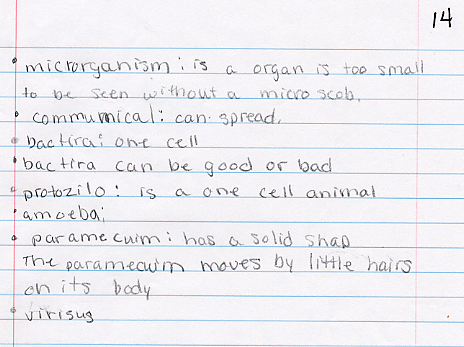 14
• microrganism: is a organ is too small
to be seen without a micro scob.
• commumical: can spread.
• bactira: one cell
• bactira can be good or bad
• protozilo: is a one cell animal
• amoeba:
• paramecuim: has a solid shap
The paramecuim moves by little hairs
on its body
• virisus